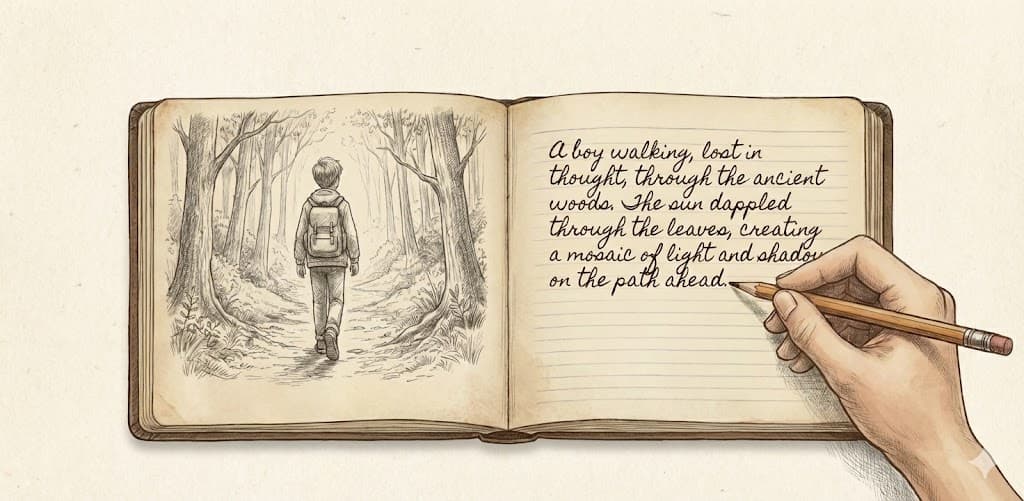 A boy walking, lost in
thought, through the ancient
woods. The sun dappled
through the leaves, creating
a mosaic of light and shadow
on the path ahead.